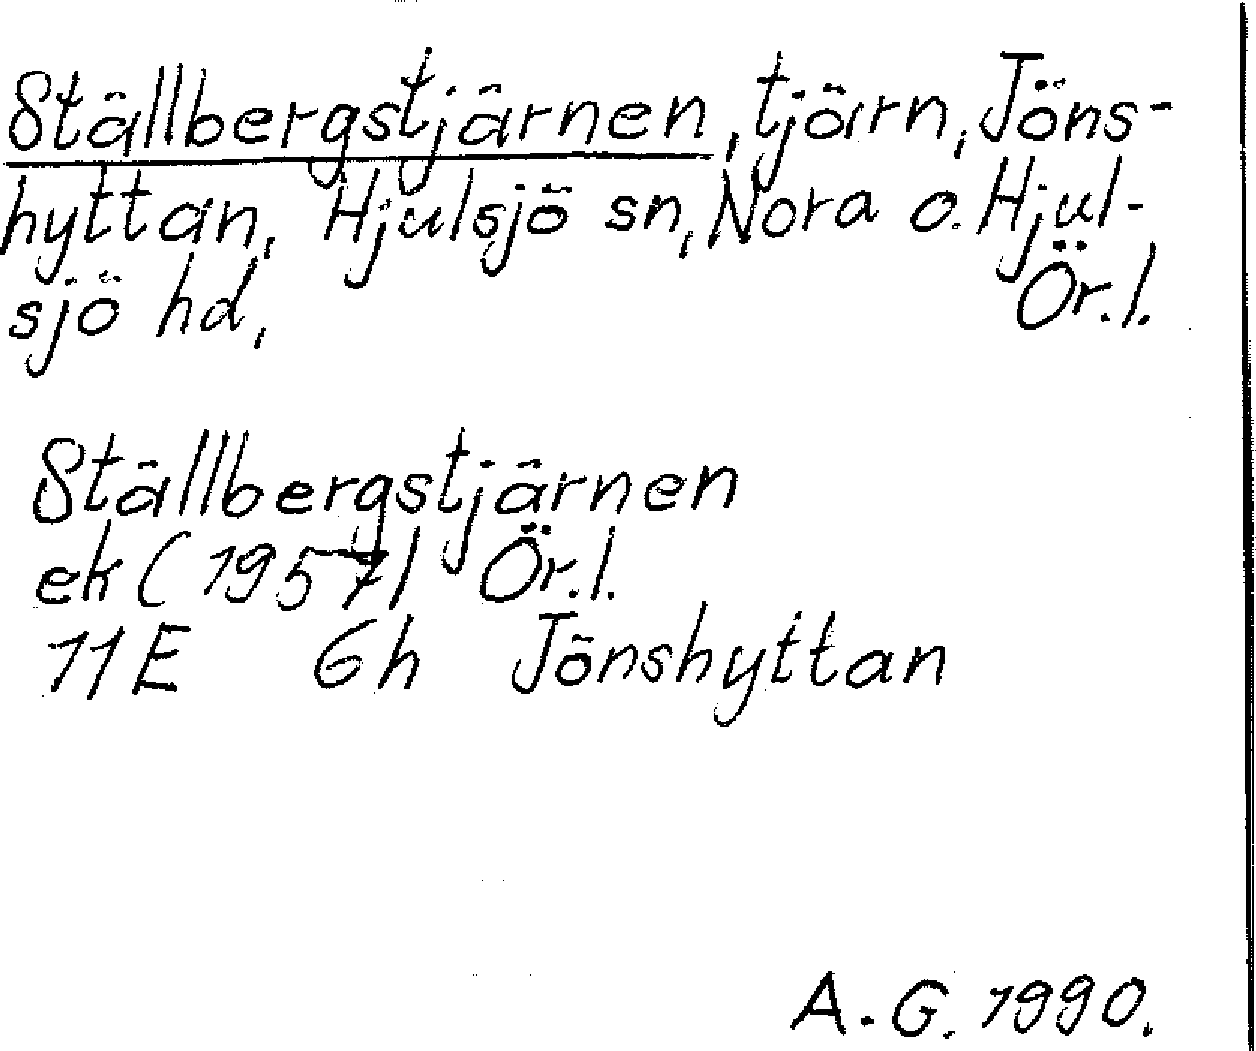 Ställbergstjärnen, tjärn, Jöns-
hyttan, Hjulsjö sn, Nora o. Hjul-
sjö hd, Ör. l.
Ställbergstjärnen
ek (1957) Ör. l.
11E 6h Jönshyttan
A. G. 1990.